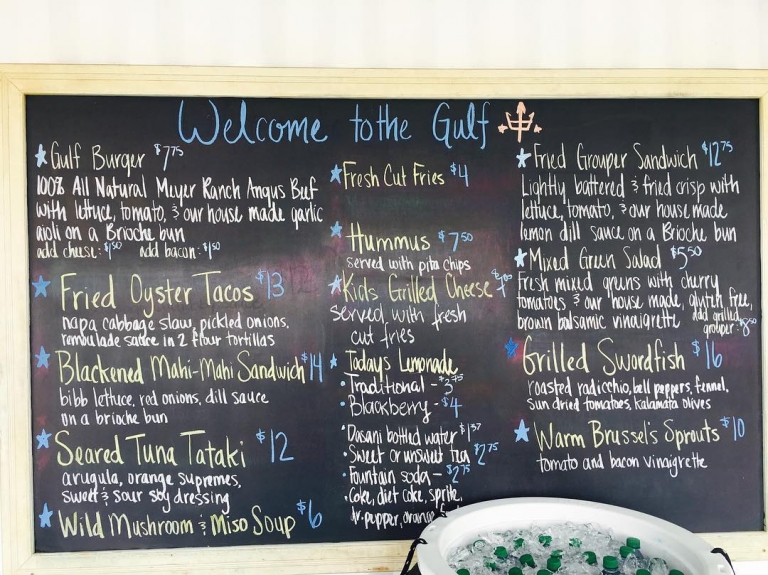 Welcome to the Gulf
Gulf Burger $7.75
100% All Natural Meyer Ranch Angus Beef
with lettuce, tomato, & our house made garlic
aioli on a Brioche bun
add cheese: $1.50 add bacon: $1.50
Fried Oyster Tacos $13
napa cabbage slaw, pickled onions,
remoulade sauce in 2 flour tortillas
Blackened Mahi-Mahi Sandwich $14
bibb lettuce, red onions, dill sauce
on a brioche bun
Seared Tuna Tataki $12
arugula, orange supremes,
sweet & sour soy dressing
Wild Mushroom & Miso Soup $6
Fresh Cut Fries $4
Hummus $7.50
served with pita chips
Kids Grilled Cheese
served with fresh
cut fries
Todays Lemonade
• Traditional -
• Blackberry - $4
• Dasani bottled water $1.37
• Sweet or unsweet tea $2.75
• Fountain soda - $2.75
• Coke, diet coke, sprite,
dr. pepper, orange
Fried Grouper Sandwich $12.75
Lightly battered & fried crisp with
lettuce, tomato, & our house made
lemon dill sauce on a Brioche bun
Mixed Green Salad $5.50
Fresh mixed greens with cherry
tomatoes & our house made, gluten free,
brown balsamic vinaigrette add grilled
grouper: $8.50
Grilled Swordfish $16
roasted radicchio, bell peppers, fennel,
sun dried tomatoes, kalamata olives
Warm Brussel's Sprouts $10
tomato and bacon vinaigrette